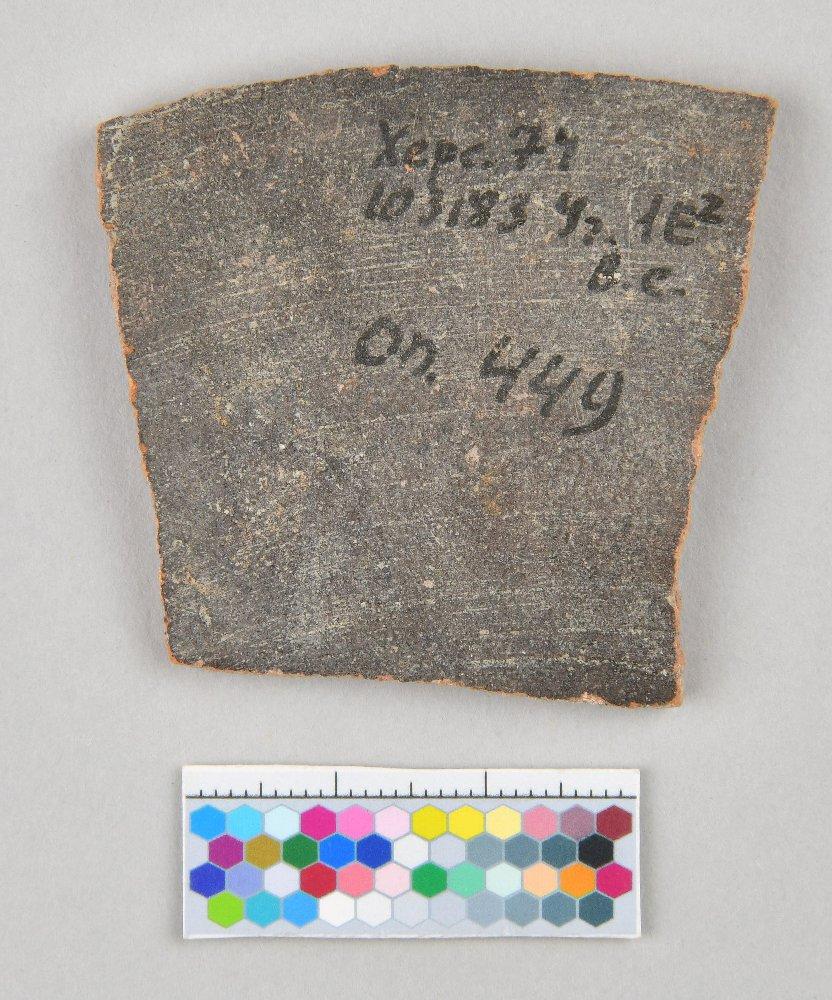 Херс. 74
103183 Уч. 1Е²
В.С.
Оп. 449